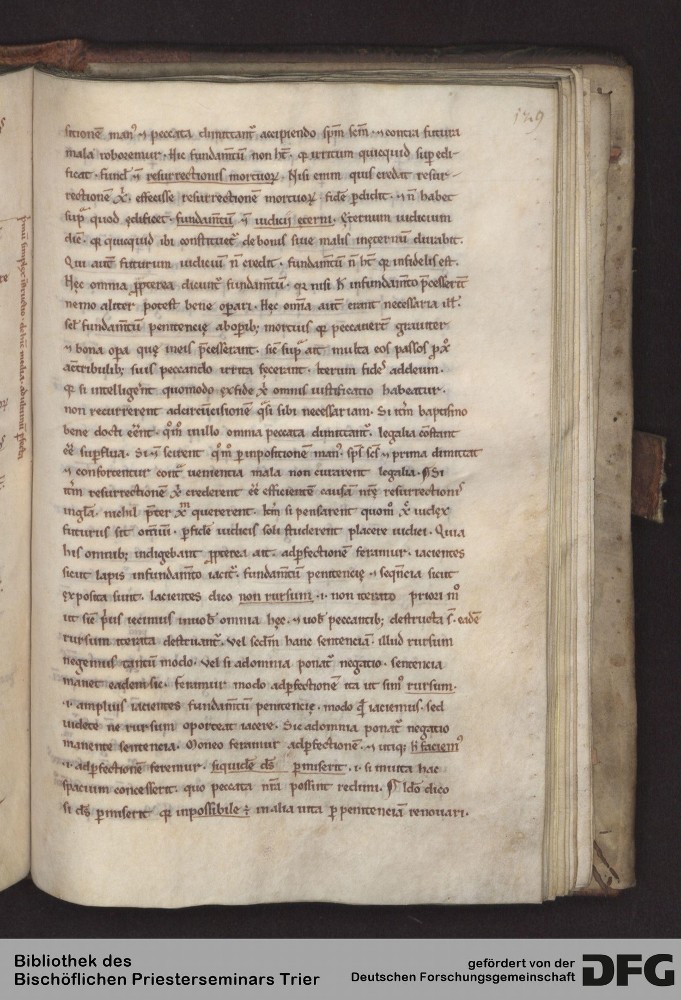 129
sitionē man᾽ ⁊ peccata dimittant᷑ accipiendo sp̄m sc̄m · ⁊ contra futura
mala roborentur · Hic fundam̄tū non ht̄ · q᷑ irritum quicquid sup edi-
ficat · fund̄ ÷ resurrectionis mortuoꝝ · Nisi enim quis credat resur-
rectionē x̄ effecisse resurrectionē mortuoꝝ fidē p̄didit · ⁊ n̄ habet
sup̄ quod ędificet · fundam̄tū ÷ iudicii eterni · Ęternum iudicium
diē · q᷑ quicquid ibi constituet᷑ de bonis siue malis in ęternū durabit ·
Qui aut̄ futurum iudiciū n̄ credit · fundam̄tū n̄ ht̄ q᷑ infidelis est ·
Hęc omnia p̄pterea dicunt᷑ fundam̄tū · q᷑ nisi h̄ in fundam̄to p̄cesserīt
nemo aliter potest bene op̄ari · Hęc om̄ia aut̄ erant necessaria ill᷑
scł fundam̄tū penitencię ab op̄ib; mortuis q᷑ peccauer̄t grauiter
⁊ bona op̄a quę in eis p̄cesserant · sic̄ sup̄ ait multa eos passos p x̄
a c̄tribulib; suis peccando irrita fecerant · Iterum fidei addeum ·
q᷑ si intelliger̄nt quomodo ex fide x̄ omnis iustificatio habeatur ·
non recurrerent ad circūcisionē q̄si sibi necessariam · Si itē baptismo
bene docti eēnt · qm̄ in illo omnia peccata dimittant᷑ · legalia c̄stant
eē supflua · Si ⁊ scirent qm̄ p inpositionē man᾽ · sp̄s sc̄s ⁊ prima dimittat
⁊ confortentur cont᷑ uenientia mala non curarent legalia · ¶ Si
itē resurrectionē x̄ crederent eē efficientē causā nr̄ę resurrectionis
in gl̄am · nichil p̄ter x̄m quererent · Itē si pensarent quom̄ x̄ iudex
futurus sit om̄iū · p fidē iudicis soli studerent placere iudici · Quia
his omnib; indigebant p̄pterea ait · ad pfectionē feramur · iacientes
sicut lapis in fundam̄to iacit᷑ · fundam̄tū penitencię ⁊ seq̄ncia sicut
exposita sunt · Iacientes dico non rursum · i · non iterato priori m°
ut sic̄ p̄us iecimus in uob̄ omnia hęc · ⁊ uob̄ peccantib; destructa s̄ · eadē
rursum iterata destruant᷑ · Vel sec̄dm hanc sentenciā · illud rursum
negemus tantū modo · Vel si ad omnia ponat᷑ negatio · sentencia
manet eadem sic · feramur modo ad pfectionē ita ut sim᾽ rursum ·
· i · amplius iacientes fundam̄tū penitencię · modo q̄ iaciemus · sed
uidete ne rursum oporteat iacere · Sic ad omnia ponat᷑ negatio
manente sentencia · Moneo feramur ad pfectionē · ⁊ utiq᷑ h̄ faciem᾽
· i · ad pfectionē feremur · siquidē d̄s pmiserit · i · si in uita hac
spacium concesserit · quo peccata nr̄a possint redimi · ¶ Ido dico
si d̄s pmiserit q᷑ inpossibile ÷ in alia uita p penitenciā renouari ·
Bibliothek des
Bischöflichen Priesterseminars Trier
gefördert von der
Deutschen Forschungsgemeinschaft
DFG